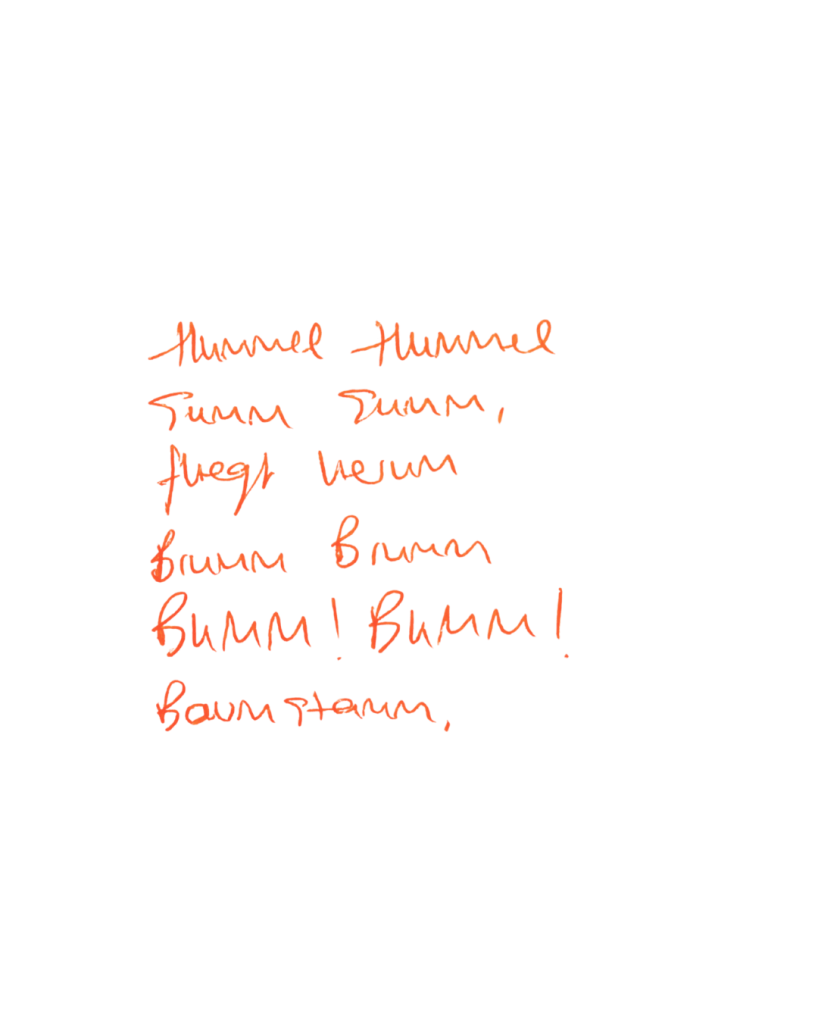 Hummel Hummel
Summ Summ,
fliegt herum
Brumm Brumm
Bumm! Bumm!
Baumstamm.